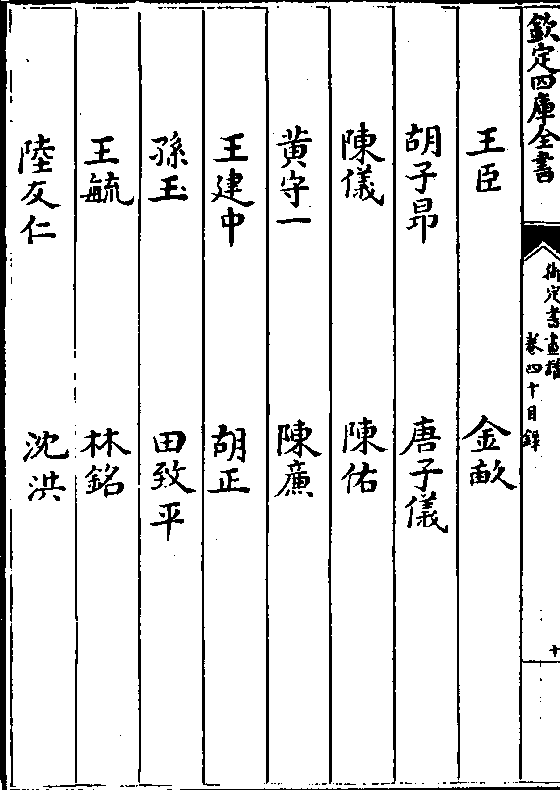 欽定四庫全書
御定書畫譜
卷四十目錄
十
王臣 金畝
胡子昂 唐子儀
陳儀 陳佑
黃守一 陳廉
王建中 胡正
孫玉 田致平
王毓 林銘
陸友仁 沈洪